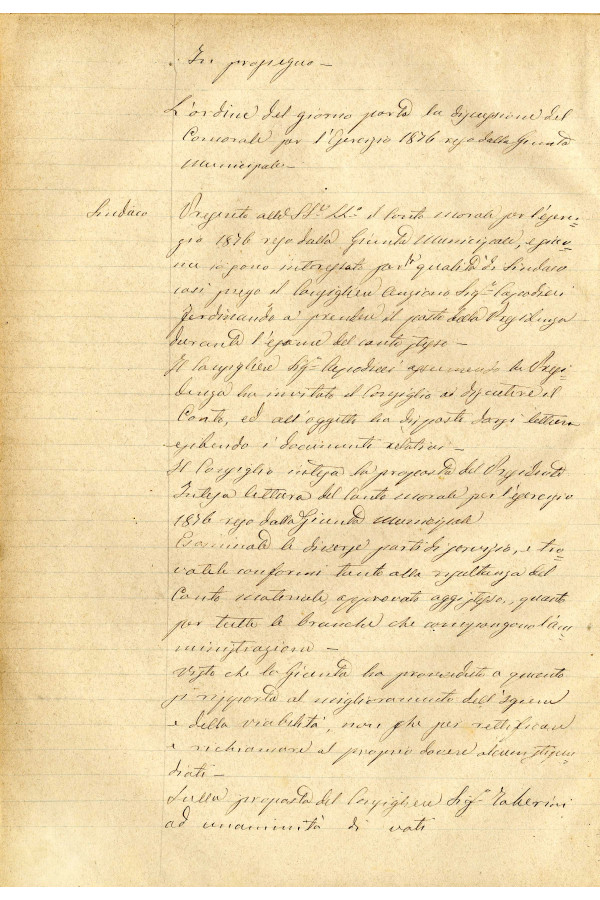 In proseguo –
L'ordine del giorno porta la discussione del
Conto morale per l'Esercizio 1876 reso dalla Giunta
Municipale –
Sindaco
Presento alle SS.e LL.e il Conto morale per l'eser=
zio 1876 reso dalla Giunta Municipale, e sicco=
me io sono interessato per la qualità di Sindaco
così prego il Consigliere Anziano Sig.r Capodieci
Ferdinando a prendere il posto della Presidenza
durante l'esame del conto stesso –
Il Consigliere Sig.r Capodieci assumendo la Presi=
denza ha invitato il Consiglio a discutere il
Conto, ed all'oggetto ha disposto darsi lettura
esibendo i documenti relativi –
Il Consiglio intesa la proposta del Presidente
Intesa lettura del Conto morale per l'esercizio
1876 reso dalla Giunta Municipale
Esaminate le diverse parti di servizio, e tro=
vatele conformi tanto alla risultanza del
Conto materiale approvato oggi stesso, quanto
per tutte le branche che compongono l'am=
ministrazione –
Visto che la Giunta ha provveduto a quanto
si rapporta al miglioramento dell'igiene
e della viabilità, non che per rettificare
e richiamare al proprio dovere alcuni stipen=
diati –
Sulla proposta del Consigliere Sig.r
ad unanimità di voti